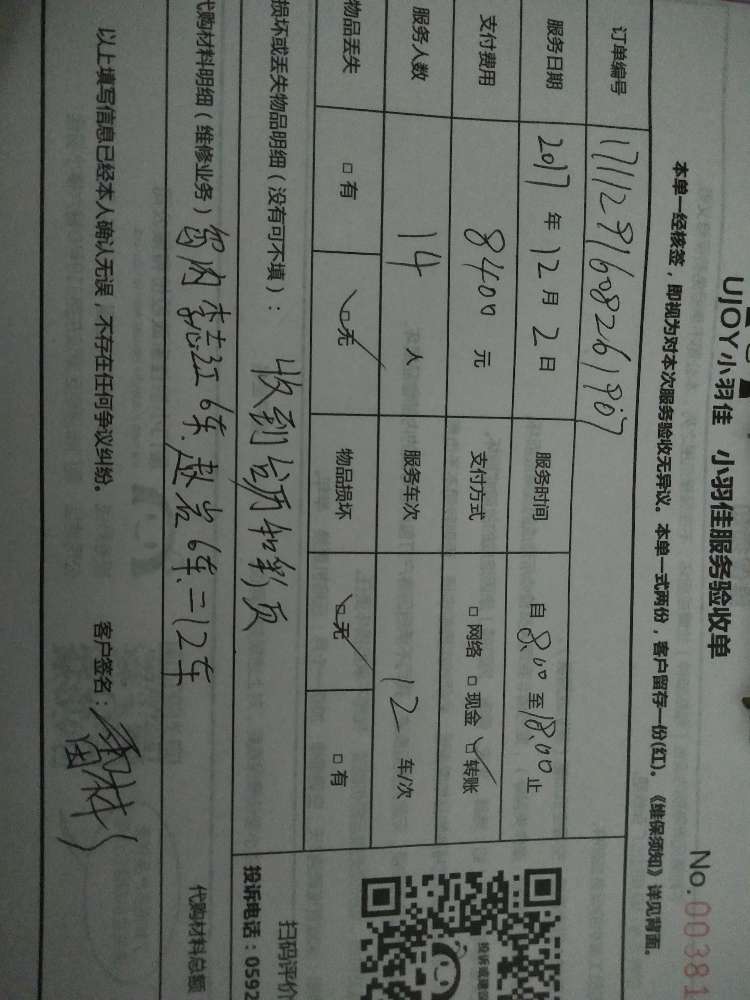 UJOY小羽佳 小羽佳服务验收单
No.00381
本单一经核签，即视为对本次服务验收无异议。本单一式两份，客户留存一份(红)。《维保须知》详见背面。
订单编号 17111291608261907
服务日期 2017 年 12 月 2 日 服务时间 自 8:00 至 18:00 止
支付费用 8400 元 支付方式 □ 网络 □ 现金 ☑ 转账
服务人数 14 人 服务车次 12 车/次
物品丢失 □ 有 ☑ 无 物品损坏 ☑ 无 □ 有
损坏或丢失物品明细（没有可不填）： 收到台历和彩页
代购材料明细（维修业务） 岛内 李志红 6车. 赵岩 6车 = 12车
代购材料总额
以上填写信息已经本人确认无误，不存在任何争议纠纷。 客户签名：
投诉或建议
扫码评价
投诉电话：0592